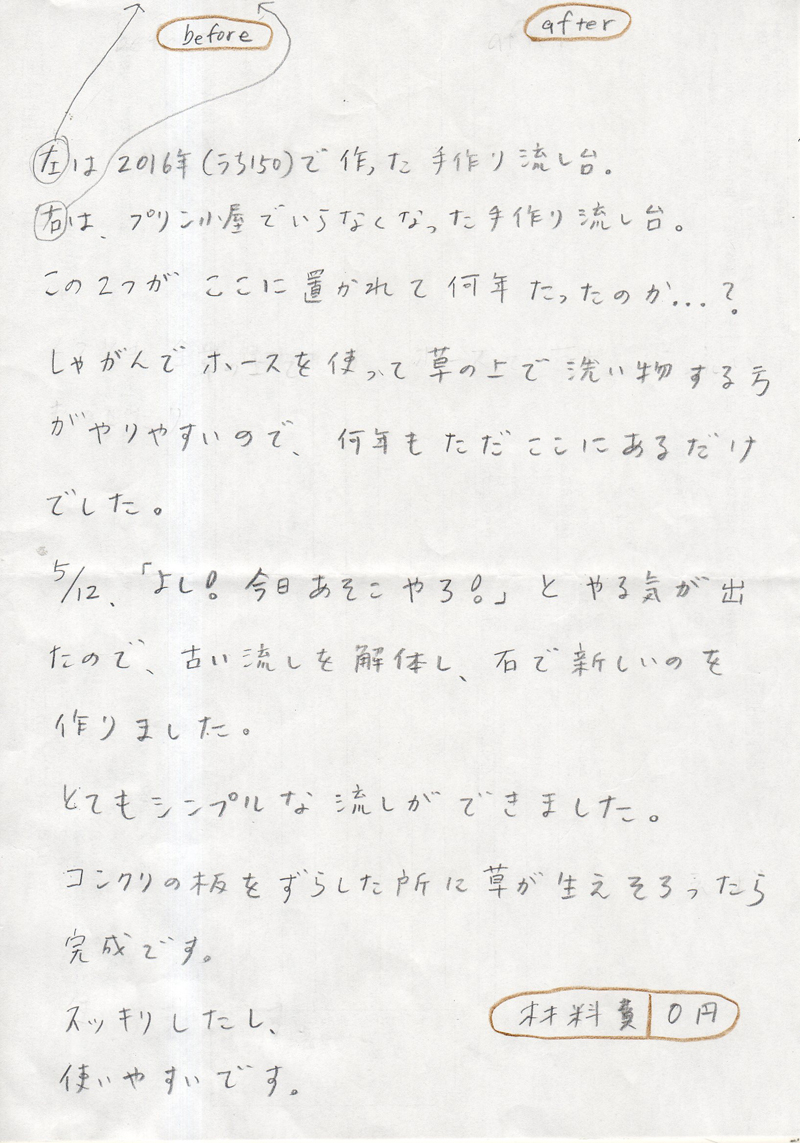 before
after
左は2016年(うち150)で作った手作り流し台。
右は、プリン小屋でいらなくなった手作り流し台。
この2つがここに置かれて何年たったのか…?
しゃがんでホースを使って草の上で洗い物する方
がやりやすいので、何年もただここにあるだけ
でした。
5/12、「よし!今日あそこやろ!」とやる気が出
たので、古い流しを解体し、石で新しいのを
作りました。
とてもシンプルな流しができました。
コンクリの板をずらした所に草が生えそろったら
完成です。
スッキリしたし、
使いやすいです。
材料費 0円